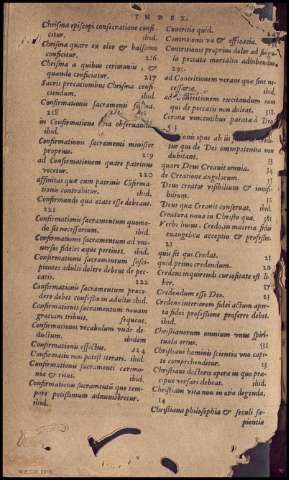 INDEX.
Chrisma episcopi consecratione conficitur.
ibid.
Chrisma quare ex oleo & balsamo
conficitur.
216
Chrisma a quibus cerimoniis, &
quando conficiatur.
217
Sacris precationibus Chrisma conficiendum.
ibid.
Confirmationis sacramenti
218
in Confirmatione
ibid.
Confirmationis sacramenti minister
proprius.
219
ad Confirmationem quare patrinus
vocetur.
220
affinitas quæ cum patrinis Confirmationis contrahitur.
ibid.
Confirmandi qua ætate esse debeant.
221
Confirmationis sacramentum quomodo sit necessarium.
ibid.
Confirmationis sacramentum ad universos fideles aque pertinet.
ibid.
Confirmationis sacramentum suscipientes adultos dolere debent de peccatis.
222
Confirmationis sacramentum præcedere debet confessio in adultis.
ibid.
Confirmationis sacramentum novam
gratiam tribuit.
sequens.
Confirmationis vocabulum unde deductum.
ibidem
Confirmationis effectus.
224
Confirmatio non potest iterari.
ibid.
Confirmationis sacramenti cerimoniæ & ritus.
ibid.
Confirmationis sacramentum quo tempore potissimum administretur.
ibid.
Contritio quid.
Contritionis vis & efficacia.
Contritionis proprius dolor ad singula peccata mortalia adhibendus
ad Contritionem veram quæ sint necessaria.
ibid.
ad Contritionem excitandum non
qui de peccatis non doleat.
Corona vincentibus parata à Deo
qui de Dei omnipotentia non
dubitant.
quare Deus Creavit omnia.
de Creatione angelorum.
Deus creator visibilium & invisibilium.
Deus quæ Creavit conservat.
ibid.
Creatura nova in Christo quæ.
Verbi huius, Credo, in materia fidei
evangelica acceptio & professio.
21
quis sit qui Credat.
quid primo credendum.
20
Credens inquirendi curiositate est liber.
Credendum esse Deo.
21
Credens interiorem fidei actum aperta fidei professione proferre debet.
ibid.
Christianorum omnium unus spiritualis ortus.
Christiani hominis scientia una capite comprehenditur.
Christiani doctoris opera in quo præcipue versari debeat.
ibid.
Christiani vita non in una legenda.
14
Christiana philosophia & seculi sapientia